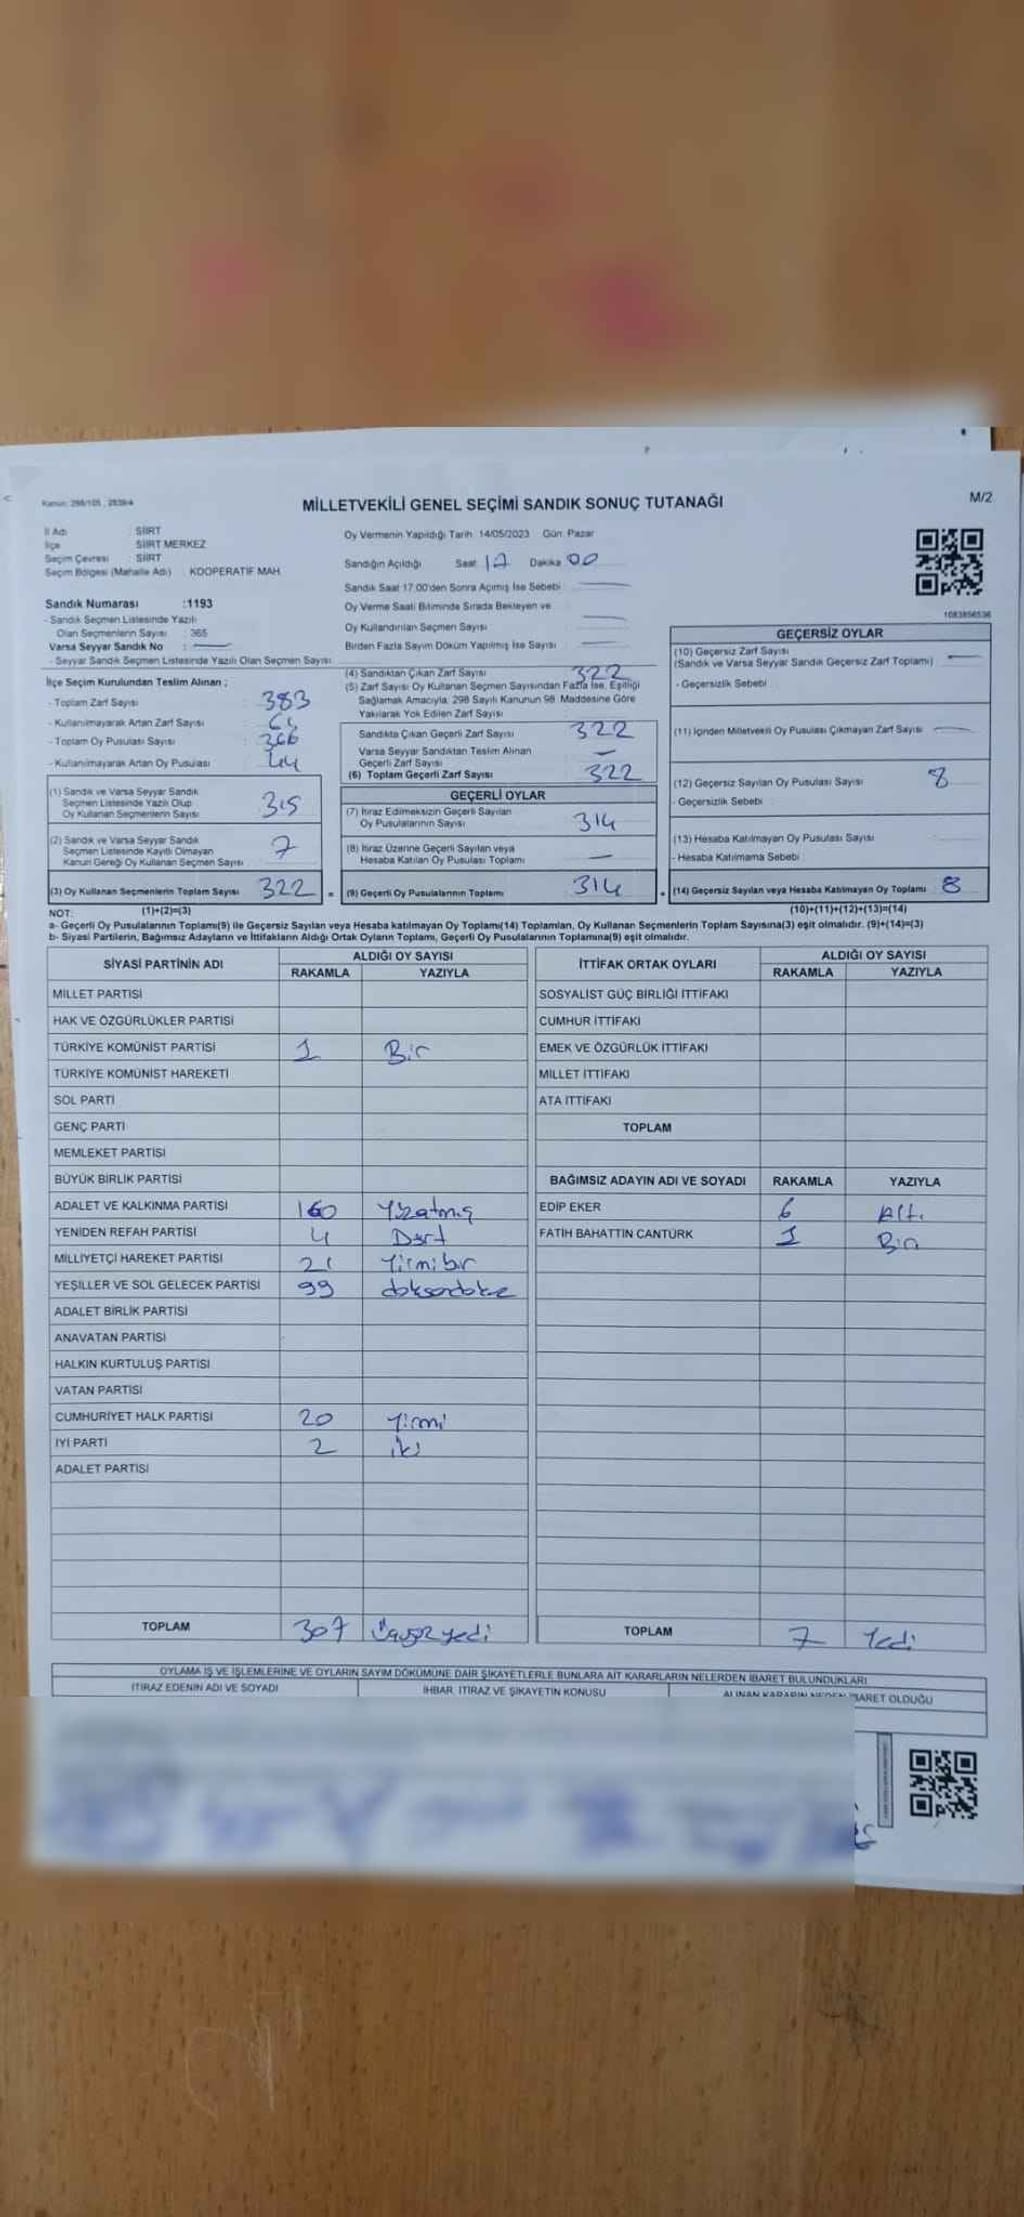 Kanun: 298/105, 2839/4
MİLLETVEKİLİ GENEL SEÇİMİ SANDIK SONUÇ TUTANAĞI
M/2
İl Adı : SİİRT
İlçe : SİİRT MERKEZ
Seçim Çevresi : SİİRT
Seçim Bölgesi (Mahalle Adı) : KOOPERATİF MAH.
Sandık Numarası :1193
- Sandık Seçmen Listesinde Yazılı
Olan Seçmenlerin Sayısı : 365
Varsa Seyyar Sandık No :
- Seyyar Sandık Seçmen Listesinde Yazılı Olan Seçmen Sayısı
Oy Vermenin Yapıldığı Tarih: 14/05/2023 Gün: Pazar
Sandığın Açıldığı Saat 17 Dakika 00
Sandık Saat 17:00'den Sonra Açımış İse Sebebi
Oy Verme Saati Bitiminde Sırada Bekleyen ve
Oy Kullandırılan Seçmen Sayısı
Birden Fazla Sayım Döküm Yapılmış İse Sayısı
1083856536
İlçe Seçim Kurulundan Teslim Alınan ;
- Toplam Zarf Sayısı : 383
- Kullanılmayarak Artan Zarf Sayısı : 61
- Toplam Oy Pusulası Sayısı : 366
- Kullanılmayarak Artan Oy Pusulası : 44
(1) Sandık ve Varsa Seyyar Sandık
Seçmen Listesinde Yazılı Olup
Oy Kullanan Seçmenlerin Sayısı 315
(2) Sandık ve Varsa Seyyar Sandık
Seçmen Listesinde Kayıtlı Olmayan
Kanun Gereği Oy Kullanan Seçmen Sayısı 7
(3) Oy Kullanan Seçmenlerin Toplam Sayısı 322
(4) Sandıktan Çıkan Zarf Sayısı 322
(5) Zarf Sayısı Oy Kullanan Seçmen Sayısından Fazla İse, Eşitliği
Sağlamak Amacıyla, 298 Sayılı Kanunun 98. Maddesine Göre
Yakılarak Yok Edilen Zarf Sayısı
Sandıkta Çıkan Geçerli Zarf Sayısı 322
Varsa Seyyar Sandıktan Teslim Alınan
Geçerli Zarf Sayısı —
(6) Toplam Geçerli Zarf Sayısı 322
GEÇERLİ OYLAR
(7) İtiraz Edilmeksizin Geçerli Sayılan
Oy Pusulalarının Sayısı 314
(8) İtiraz Üzerine Geçerli Sayılan veya
Hesaba Katılan Oy Pusulası Toplamı —
(9) Geçerli Oy Pusulalarının Toplamı 314
GEÇERSİZ OYLAR
(10) Geçersiz Zarf Sayısı
(Sandık ve Varsa Seyyar Sandık Geçersiz Zarf Toplamı) —
- Geçersizlik Sebebi :
(11) İçinden Milletvekili Oy Pusulası Çıkmayan Zarf Sayısı —
(12) Geçersiz Sayılan Oy Pusulası Sayısı 8
- Geçersizlik Sebebi :
(13) Hesaba Katılmayan Oy Pusulası Sayısı
- Hesaba Katılmama Sebebi :
(14) Geçersiz Sayılan veya Hesaba Katılmayan Oy Toplamı 8
NOT: (1)+(2)=(3) (10)+(11)+(12)+(13)=(14)
a- Geçerli Oy Pusulalarının Toplamı(9) ile Geçersiz Sayılan veya Hesaba katılmayan Oy Toplamı(14) Toplamları, Oy Kullanan Seçmenlerin Toplam Sayısına(3) eşit olmalıdır. (9)+(14)=(3)
b- Siyasi Partilerin, Bağımsız Adayların ve İttifakların Aldığı Ortak Oyların Toplamı, Geçerli Oy Pusulalarının Toplamına(9) eşit olmalıdır.
SİYASİ PARTİNİN ADI ALDIĞI OY SAYISI
RAKAMLA YAZIYLA
MİLLET PARTİSİ
HAK VE ÖZGÜRLÜKLER PARTİSİ
TÜRKİYE KOMÜNİST PARTİSİ 1 Bir
TÜRKİYE KOMÜNİST HAREKETİ
SOL PARTİ
GENÇ PARTİ
MEMLEKET PARTİSİ
BÜYÜK BİRLİK PARTİSİ
ADALET VE KALKINMA PARTİSİ 160 Yüzatmış
YENİDEN REFAH PARTİSİ 4 Dört
MİLLİYETÇİ HAREKET PARTİSİ 21 Yirmibir
YEŞİLLER VE SOL GELECEK PARTİSİ 99 doksandokuz
ADALET BİRLİK PARTİSİ
ANAVATAN PARTİSİ
HALKIN KURTULUŞ PARTİSİ
VATAN PARTİSİ
CUMHURİYET HALK PARTİSİ 20 Yirmi
İYİ PARTİ 2 iki
ADALET PARTİSİ
TOPLAM 307 Üçyüzyedi
İTTİFAK ORTAK OYLARI ALDIĞI OY SAYISI
RAKAMLA YAZIYLA
SOSYALİST GÜÇ BİRLİĞİ İTTİFAKI
CUMHUR İTTİFAKI
EMEK VE ÖZGÜRLÜK İTTİFAKI
MİLLET İTTİFAKI
ATA İTTİFAKI
TOPLAM
BAĞIMSIZ ADAYIN ADI VE SOYADI RAKAMLA YAZIYLA
EDİP EKER 6 Altı
FATİH BAHATTİN CANTÜRK 1 Bir
TOPLAM 7 Yedi
OYLAMA İŞ VE İŞLEMLERİNE VE OYLARIN SAYIM DÖKÜMÜNE DAİR ŞİKAYETLERLE BUNLARA AİT KARARLARIN NELERDEN İBARET BULUNDUKLARI
İTİRAZ EDENİN ADI VE SOYADI İHBAR, İTİRAZ VE ŞİKAYETİN KONUSU ALINAN KARARIN NEDEN İBARET OLDUĞU